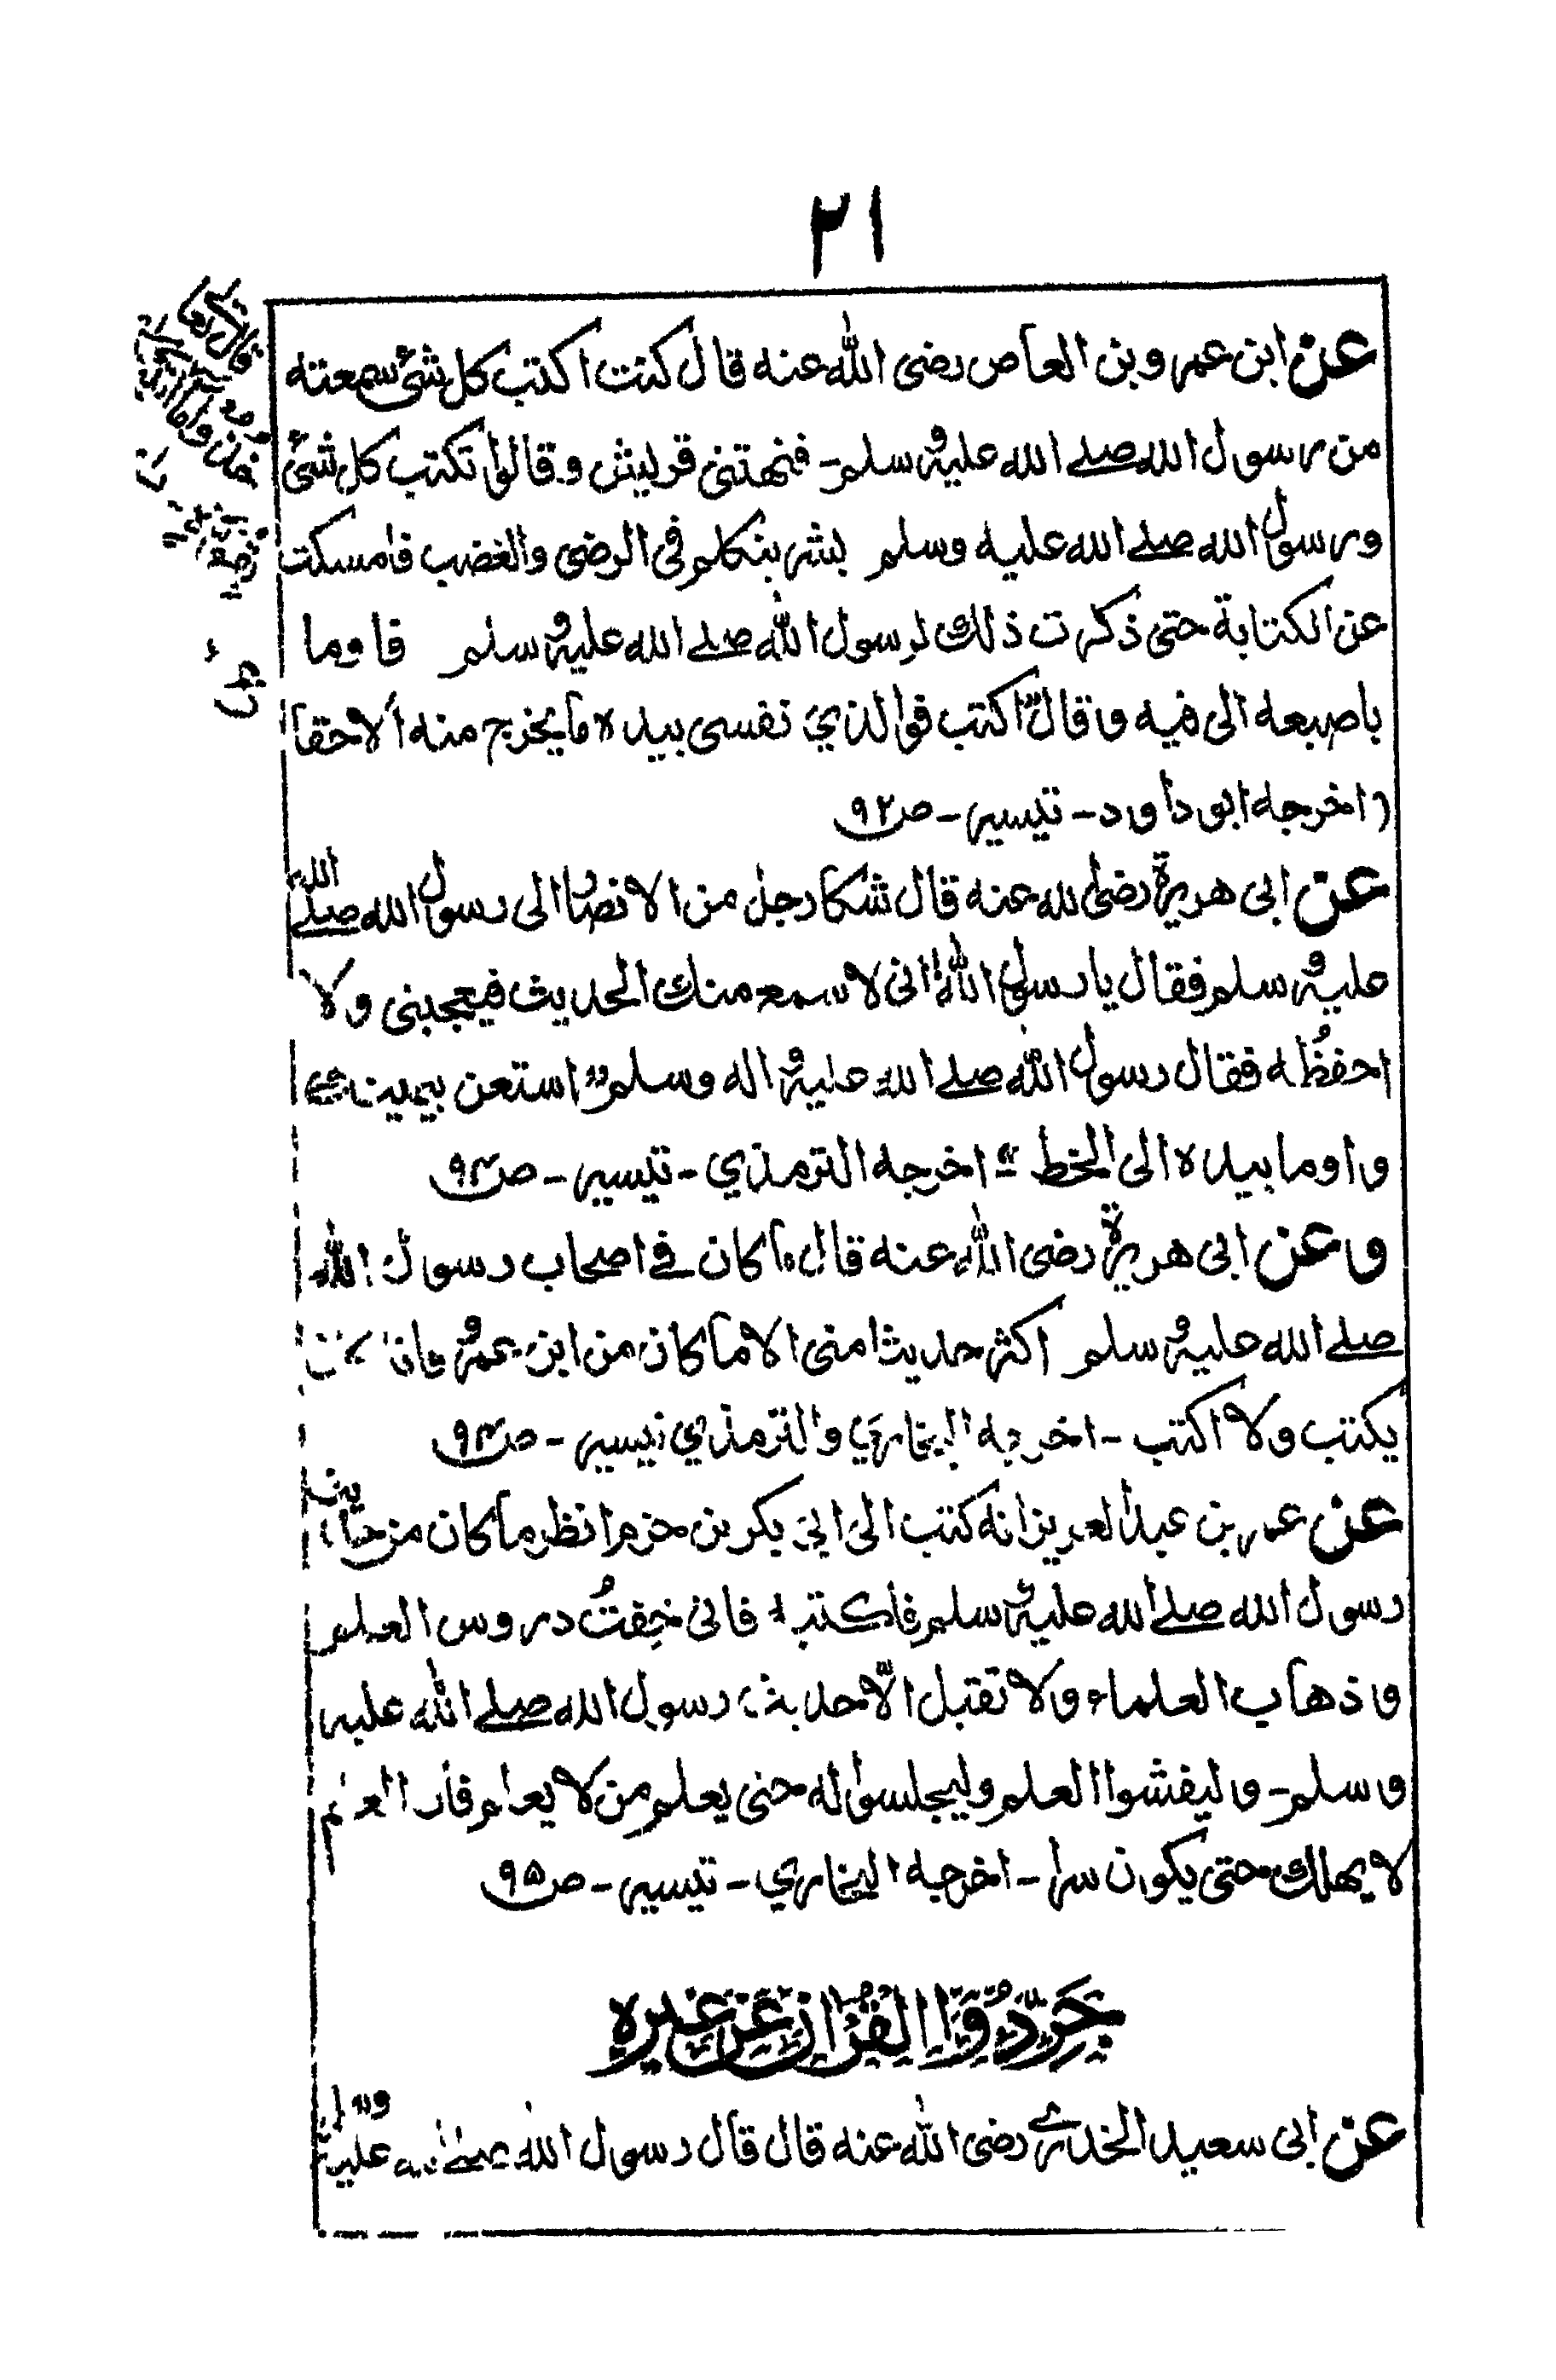 ٢١
عن ابن عمرو بن العاص رضى الله عنه قال كنت اكتب كل شئ سمعته
من رسول الله صلے الله عليه وسلم - فنهتنى قريش وقالوا تكتب كل شئ
ورسول الله صلے الله عليه وسلم بشر يتكلم فى الرضى والغضب فامسكت
عن الكتابة حتى ذكرت ذلك لرسول الله صلے الله عليه وسلم فاوما
باصبعه الى فيه وقال " اكتب فوالذي نفسى بيده ما يخرج منه الا حقا
(اخرجه ابو داود - تيسير - ص ٩٢
عن ابى هريرة رضى الله عنه قال شكا رجل من الانصار الى رسول الله صلے الله
عليه وسلم فقال يا رسول الله انى لا سمع منك الحديث فيعجبنى ولا
احفظُه فقال رسول الله صلے الله عليه واله وسلم " استعن بيمينك
واوما بيده الى الخط " اخرجه الترمذي - تيسير - ص ٩٣
وعن ابى هريرة رضى الله عنه قال ما كان فے اصحاب رسول الله
صلے الله عليه وسلم اكثر حديثا منى الا ما كان من ابن عمرو فانه كان
يكتب ولا اكتب - اخرجه البخاري والترمذي تيسير - ص ٩٣
عن عمر بن عبد العزيز انه كتب الى ابى بكر بن حزم انظر ما كان من حديث
رسول الله صلے الله عليه وسلم فاكتبه فانى خِفتُ دروس العلم
وذهاب العلماء ولا تقبل الّا حديث رسول الله صلے الله عليه
وسلم - وليفشوا العلم وليجلسوا له حتى يعلم من لا يعلم فان العلم
لا يهلك حتى يكون سرا - اخرجه البخاري - تيسير - ص ٩٥
جَرِّدُوا القُرْانَ عَنْ غيرِه
عن ابى سعيد الخدرے رضى الله عنه قال قال رسول الله صلے الله عليه